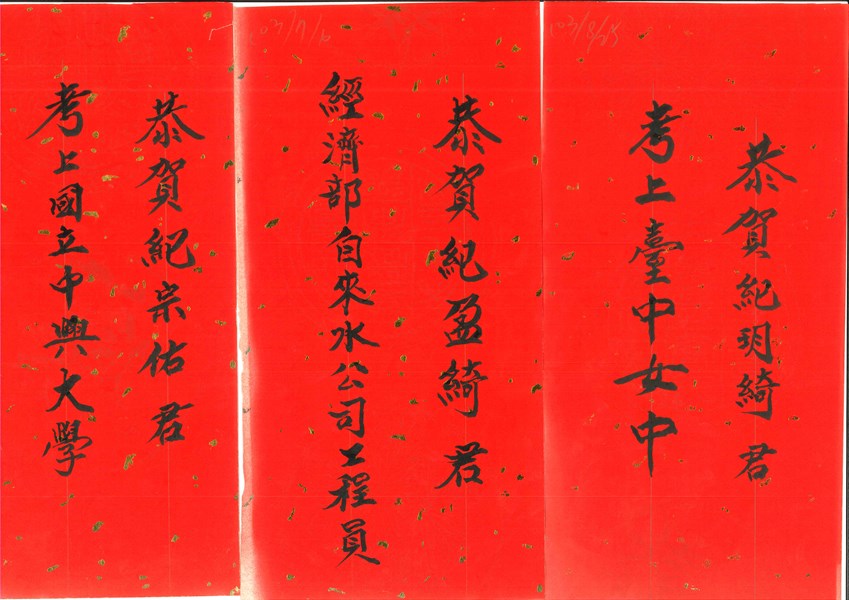 103/8/25
恭賀紀玥綺君
考上臺中女中
恭賀紀盈綺君
經濟部自來水公司工程員
恭賀紀宗佑君
考上國立中興大學